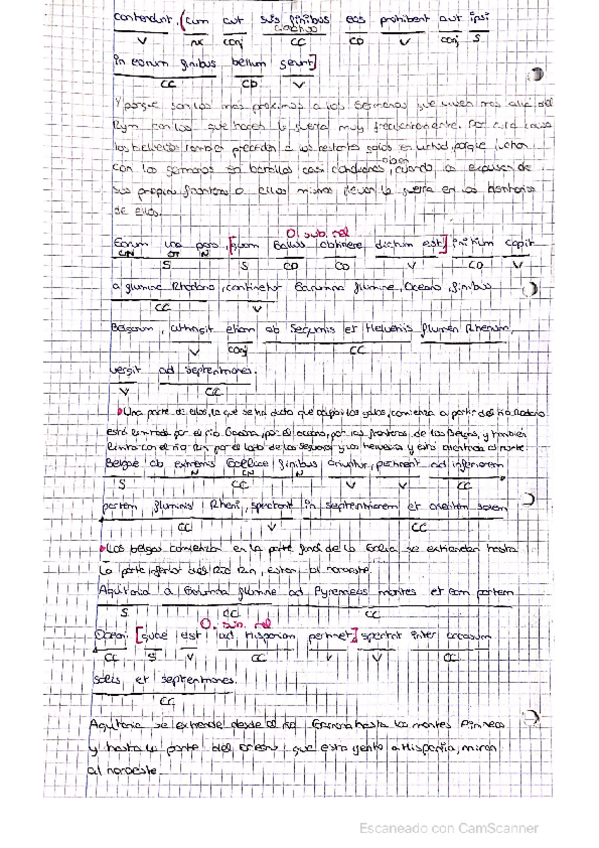 contendunt, (cum aut suis finibus eos prohibent aut ipsi
V nx conj CC CD V conj S
in eorum finibus bellum gerunt]
CC CD V
Y porque son los más próximos a los Germanos que viven más allá del
con los que hacen la guerra muy frecuentemente. Por esta causa
los helvecios también preceden a los restantes galos en virtud, porque luchan
con los germanos en batallas casi cuando o expulsan de
sus propias fronteras o ellos mismos llevan la guerra en los territorios
de ellos.
O. sub. rel
Eorum una pars, [quam Gallos obtinere dictum est] initium capit
CN DT N
S S CD CD V CD V
a flumine Rhodano, continetur Garumna flumine, Oceano, finibus
CC V
Belgarum, attingit etiam ab Sequanis et Helvetiis flumen Rhenum,
V conj CC
vergit ad septentriones.
V CC
Una parte de ellos, la que se ha dicho que los galos, comienza a partir del río Rodano
está limitada por el río Garona, por el océano, por las fronteras de los Belgas, y también
limita con el río Rin por el lado de los y los helvecios y está orientada al norte
Belgae ab extremis Galliae finibus oriuntur, pertinent ad inferiorem
N CN N
S CC V V CC
partem fluminis Rheni, spectant in septentrionem et orientem solem
CC V CC
Los belgas comienzan en la parte final de la Galia se extienden hasta
la parte inferior del Río Rin, están al noroeste.
Aquitania a Garunda flumine ad Pyreneos montes et eam partem
S CC CC
O. sub. rel
Oceani [quae est ad Hispaniam pertinet] spectat inter occasum
CC S V CC V V CC
solis et septentriones.
CC
Aquitania se extiende desde el río Garona hasta los montes Pirineos
y hasta la parte del océano que está junto a Hispania, miran
al noroeste.
Escaneado con CamScanner